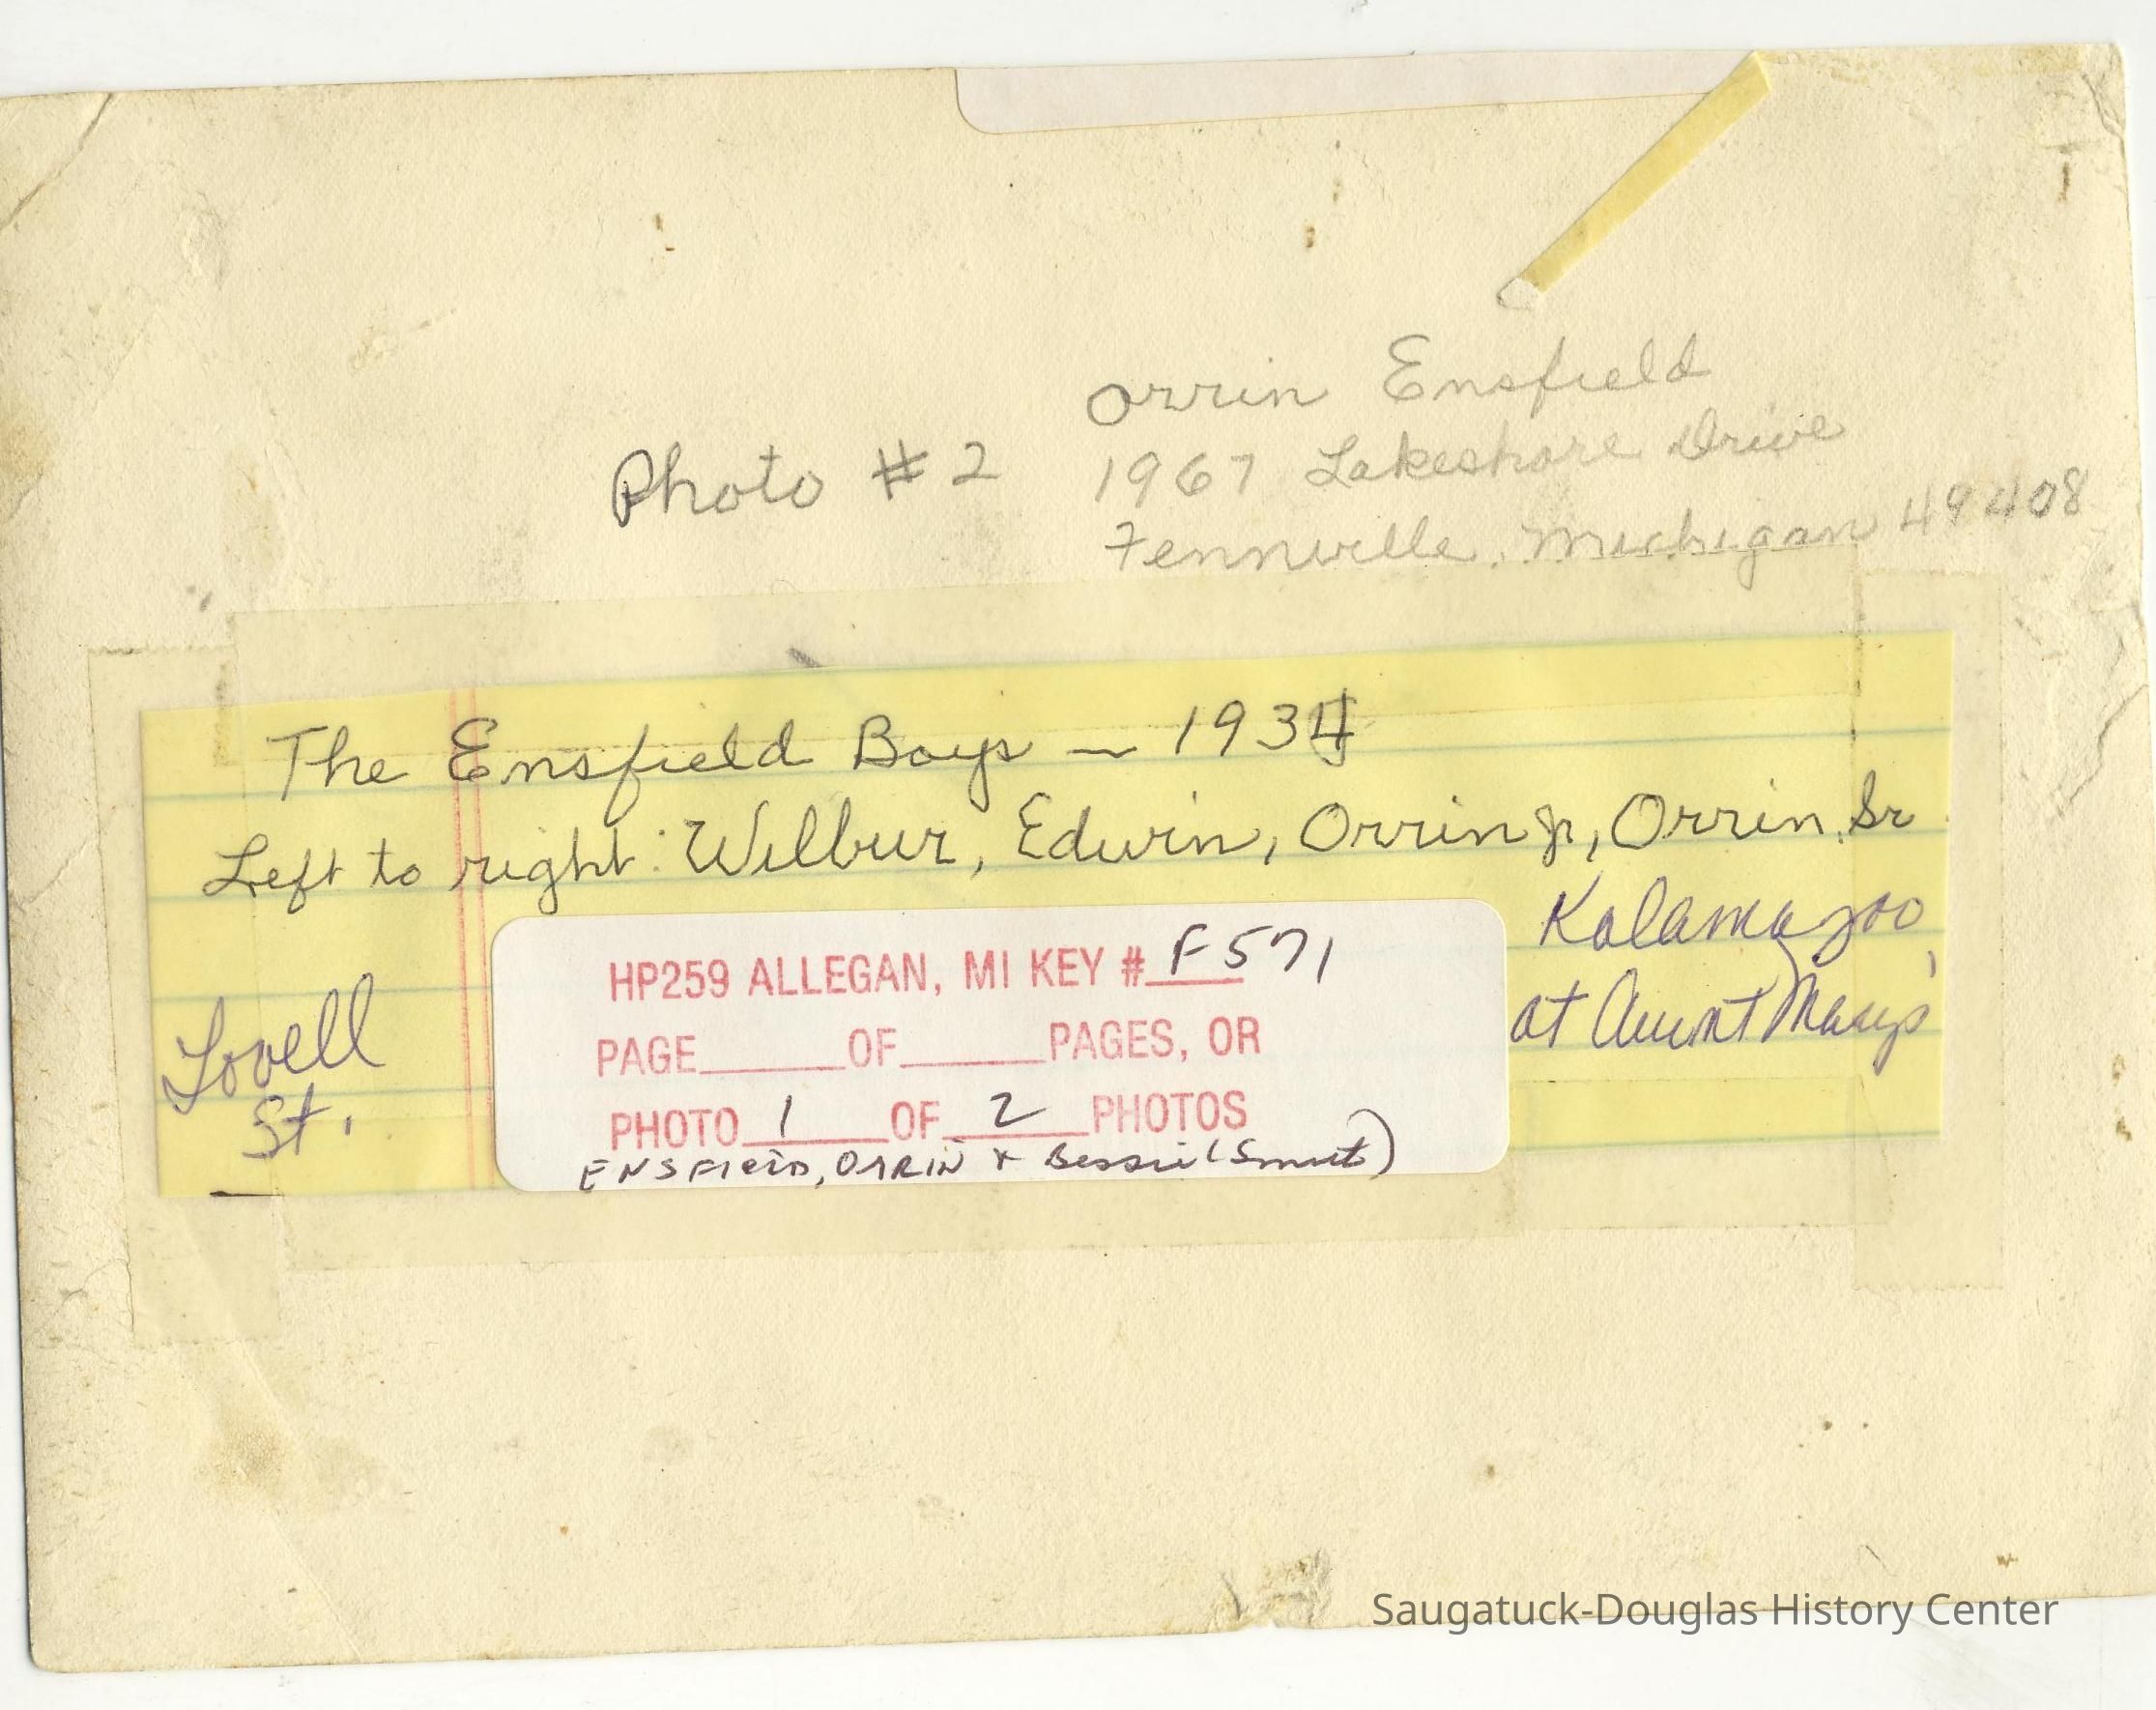 Orrin Ensfield
Photo # 2
1967 Lakeshore Drive
Fennville, Michigan 49408
The Ensfield Boys — 1934
Left to right: Wilbur, Edwin, Orrin Jr, Orrin, Sr
Kalamazoo,
at Aunt Mary's
Lovell
St.
HP259 ALLEGAN, MI KEY # F571
PAGE____OF____PAGES, OR
PHOTO 1 OF 2 PHOTOS
ENSFIELD, ORRIN + Bessie (Smut)
Saugatuck-Douglas History Center